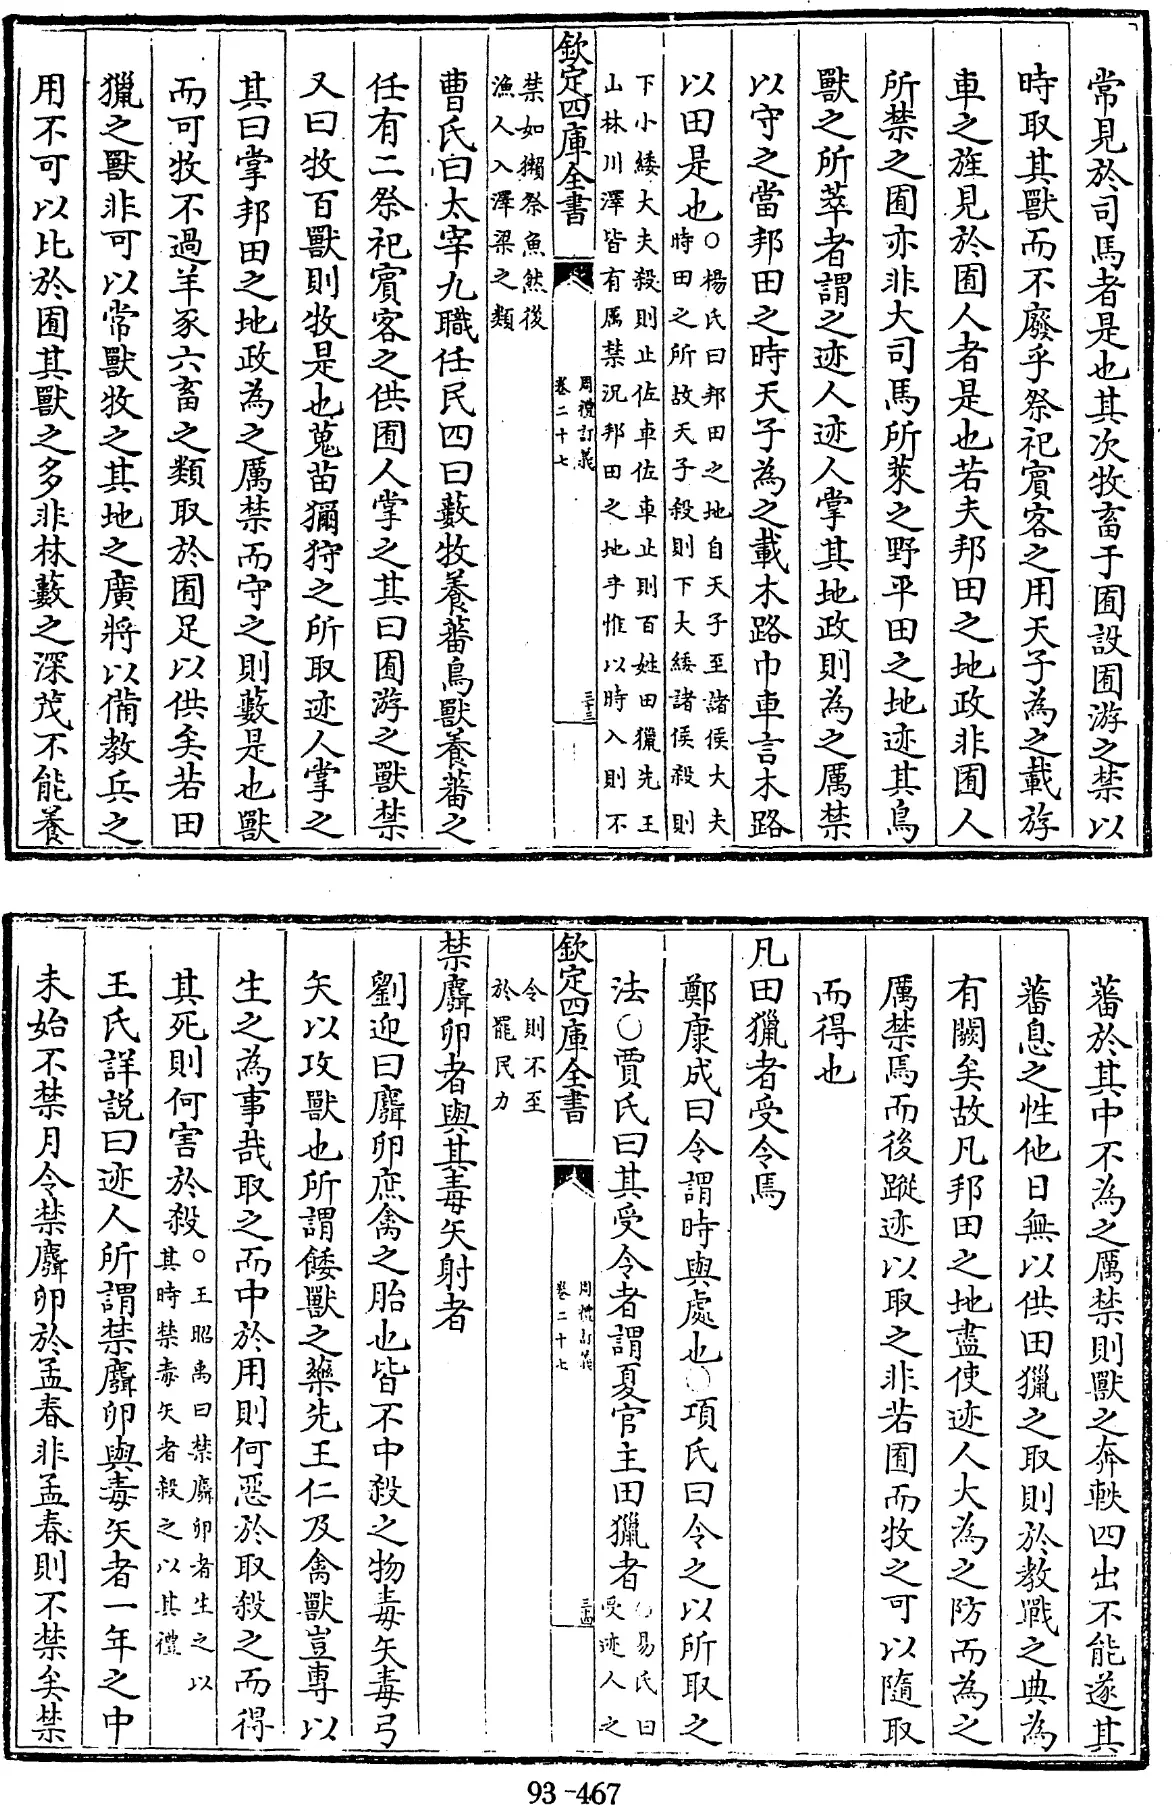 常見於司馬者是也其次牧畜于囿設囿游之禁以
時取其獸而不廢乎祭祀賓客之用天子為之載斿
車之旌見於囿人者是也若夫邦田之地政非囿人
所禁之囿亦非大司馬所萊之野平田之地迹其鳥
獸之所萃者謂之迹人迹人掌其地政則為之厲禁
以守之當邦田之時天子為之載木路巾車言木路
以田是也○楊氏曰邦田之地自天子至諸侯大夫
時田之所故天子殺則下大綏諸侯殺則
下小綏大夫殺則止佐車佐車止則百姓田獵先王
山林川澤皆有厲禁況邦田之地乎惟以時入則不
欽定四庫全書
周禮訂義
卷二十七
三十三
禁如獺祭魚然後
漁人入澤梁之類
曹氏曰太宰九職任民四曰藪牧養蕃鳥獸養蕃之
任有二祭祀賓客之供囿人掌之其曰囿游之獸禁
又曰牧百獸則牧是也蒐苗獮狩之所取迹人掌之
其曰掌邦田之地政為之厲禁而守之則藪是也獸
而可牧不過羊豕六畜之類取於囿足以供矣若田
獵之獸非可以常獸牧之其地之廣將以備教兵之
用不可以比於囿其獸之多非林藪之深茂不能養
蕃於其中不為之厲禁則獸之奔軼四出不能遂其
蕃息之性他日無以供田獵之取則於教戰之典為
有闕矣故凡邦田之地盡使迹人大為之防而為之
厲禁焉而後蹤迹以取之非若囿而牧之可以隨取
而得也
凡田獵者受令焉
鄭康成曰令謂時與處也○項氏曰令之以所取之
法○賈氏曰其受令者謂夏官主田獵者○易氏曰
受迹人之
欽定四庫全書
周禮訂義
卷二十七
三十四
令則不至
於罷民力
禁麛卵者與其毒矢射者
劉迎曰麛卵庶禽之胎也皆不中殺之物毒矢毒弓
矢以攻獸也所謂餧獸之藥先王仁及禽獸豈專以
生之為事哉取之而中於用則何惡於取殺之而得
其死則何害於殺○王昭禹曰禁麛卵者生之以
其時禁毒矢者殺之以其禮
王氏詳説曰迹人所謂禁麛卵與毒矢者一年之中
未始不禁月令禁麛卵於孟春非孟春則不禁矣禁
93-467